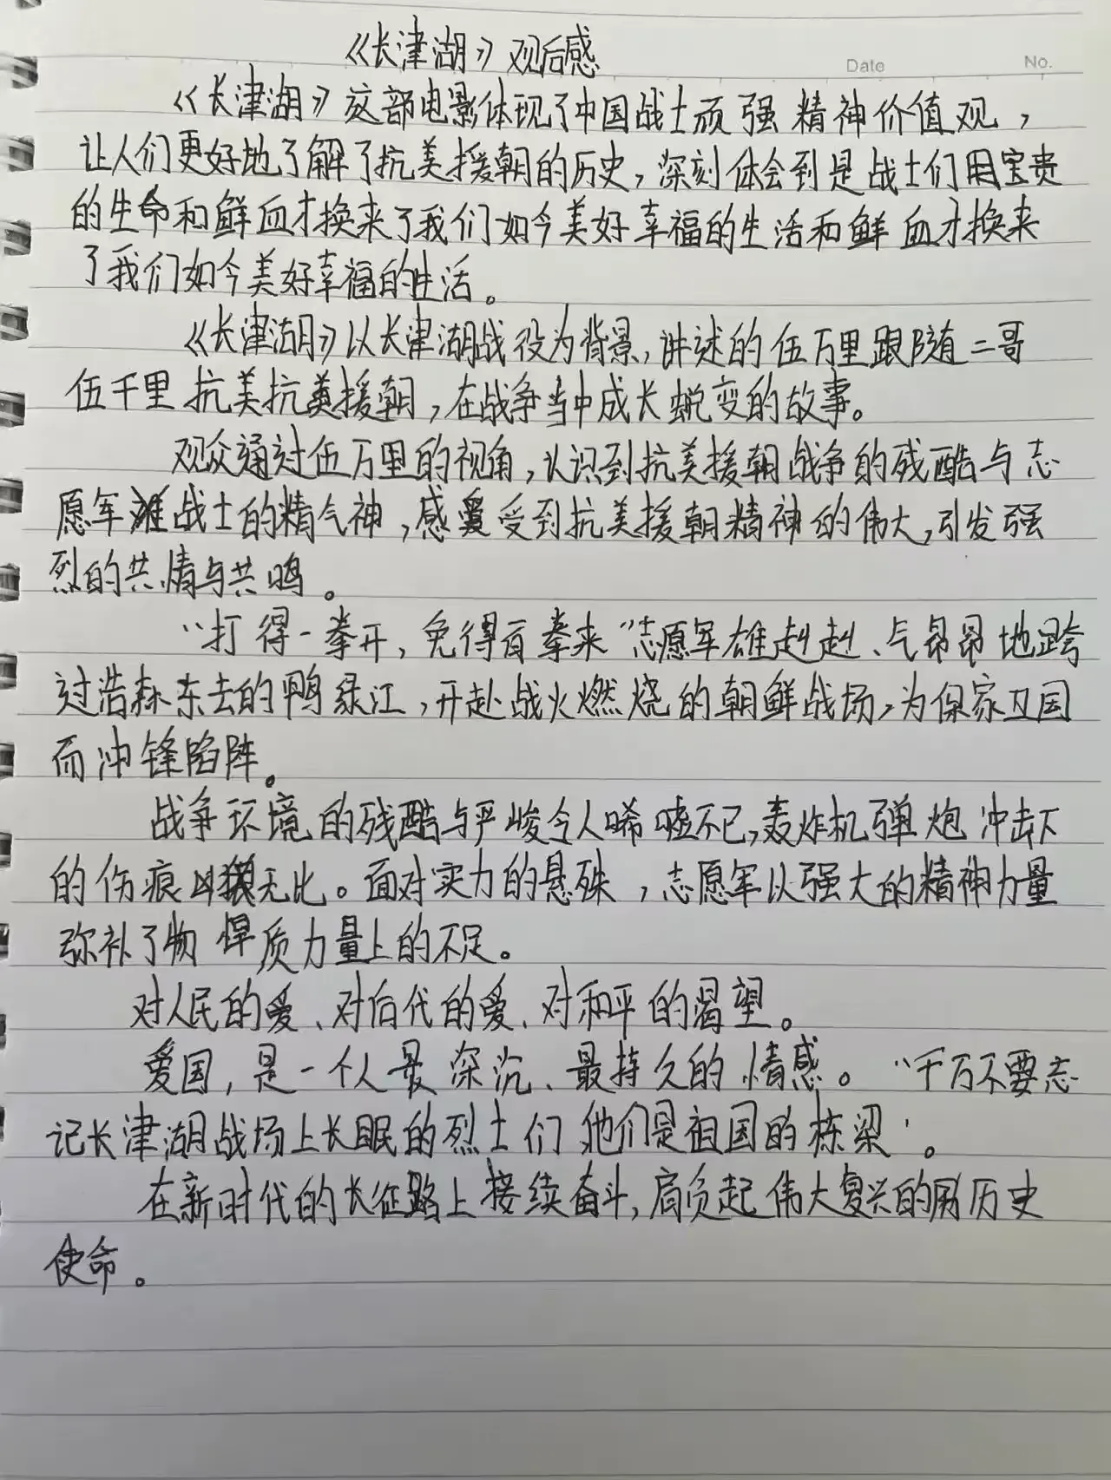 《长津湖》观后感
Date No.
《长津湖》这部电影体现了中国战士顽强精神价值观，
让人们更好地了解了抗美援朝的历史，深刻体会到是战士们用宝贵
的生命和鲜血才换来了我们如今美好幸福的生活和鲜血才换来
了我们如今美好幸福的生活。
《长津湖》以长津湖战役为背景，讲述的伍万里跟随二哥
伍千里抗美抗美援朝，在战争当中成长蜕变的故事。
观众通过伍万里的视角，认识到抗美援朝战争的残酷与志
愿军战士的精气神，感受到抗美援朝精神的伟大，引发强
烈的共情与共鸣。
“打得一拳开，免得百拳来”志愿军雄赳赳、气昂昂地跨
过浩森东去的鸭绿江，开赴战火燃烧的朝鲜战场，为保家卫国
而冲锋陷阵。
战争环境的残酷与严峻令人唏嘘不已，轰炸机弹炮冲击下
的伤痕无比。面对实力的悬殊，志愿军以强大的精神力量
弥补了物质力量上的不足。
对人民的爱、对后代的爱、对和平的渴望。
爱国，是一个人最深沉、最持久的情感。“千万不要忘
记长津湖战场上长眠的烈士们他们是祖国的栋梁'。
在新时代的长征路上接续奋斗，肩负起伟大复兴的历史
使命。